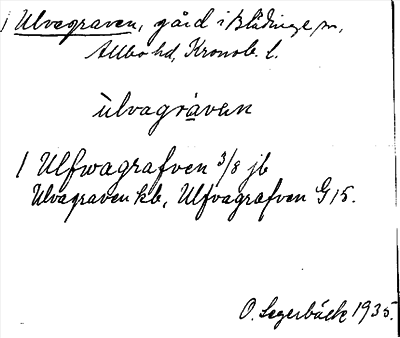 Ulvagraven, gård i Blädinge sn,
Allbo hd, Kronob. l.
ùlvagráven
1 Ulfwagrafven 3/8 jb
Ulvagraven kb, Ulfvagrafven G 15.
O. Segerbäck 1935.